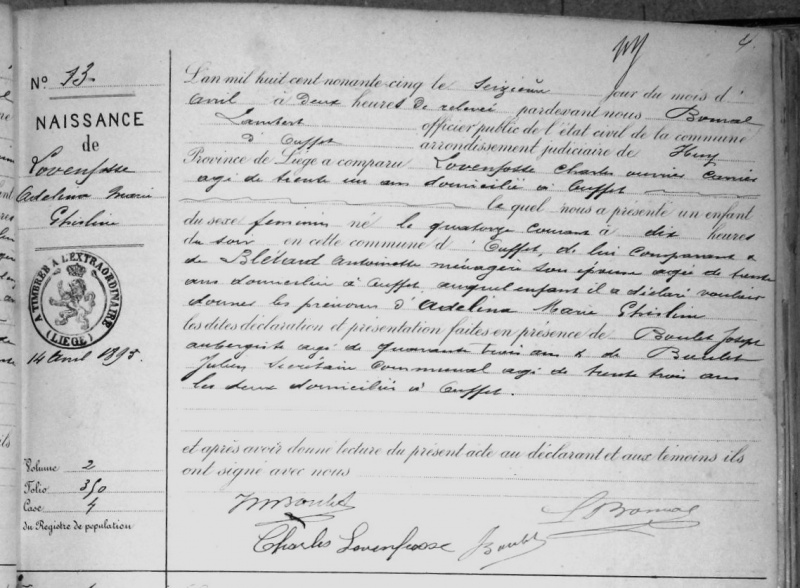 4
N° 13
NAISSANCE
de
Lovenfosse
Adelina Marie
Ghisline
A TIMBRER A L'EXTRAORDINAIRE
(LIEGE)
14 avril 1895.
Volume 2
Folio 350
Case 4
du Registre de population
L'an mil huit cent nonante-cinq le seizième jour du mois d'
avril à deux heures de relevée pardevant nous Bomal
Lambert officier public de l'état civil de la commune
d'Ouffet arrondissement judiciaire de Huy
Province de Liège a comparu Lovenfosse Charles ouvrier carrier
agé de trente un ans domicilié à Ouffet
le quel nous a présenté un enfant
du sexe feminin né le quatorze courant à dix heures
du soir en cette commune d'Ouffet, de lui comparant &
de Blétard Antoinette ménagère son épouse agée de trente
ans domiciliée à Ouffet, auquel enfant il a déclaré vouloir
donner les prénoms d'Adelina Marie Ghisline
les dites déclaration et présentation faites en présence de Boulet Joseph
aubergiste agé de quarante trois ans & de Boulet
Julien Secrétaire Communal agé de trente trois ans
les deux domiciliés à Ouffet.
et après avoir donné lecture du présent acte au déclarant et aux témoins ils
ont signé avec nous
Boulet
L Bomal
Charles Lovenfosse
J Boulet